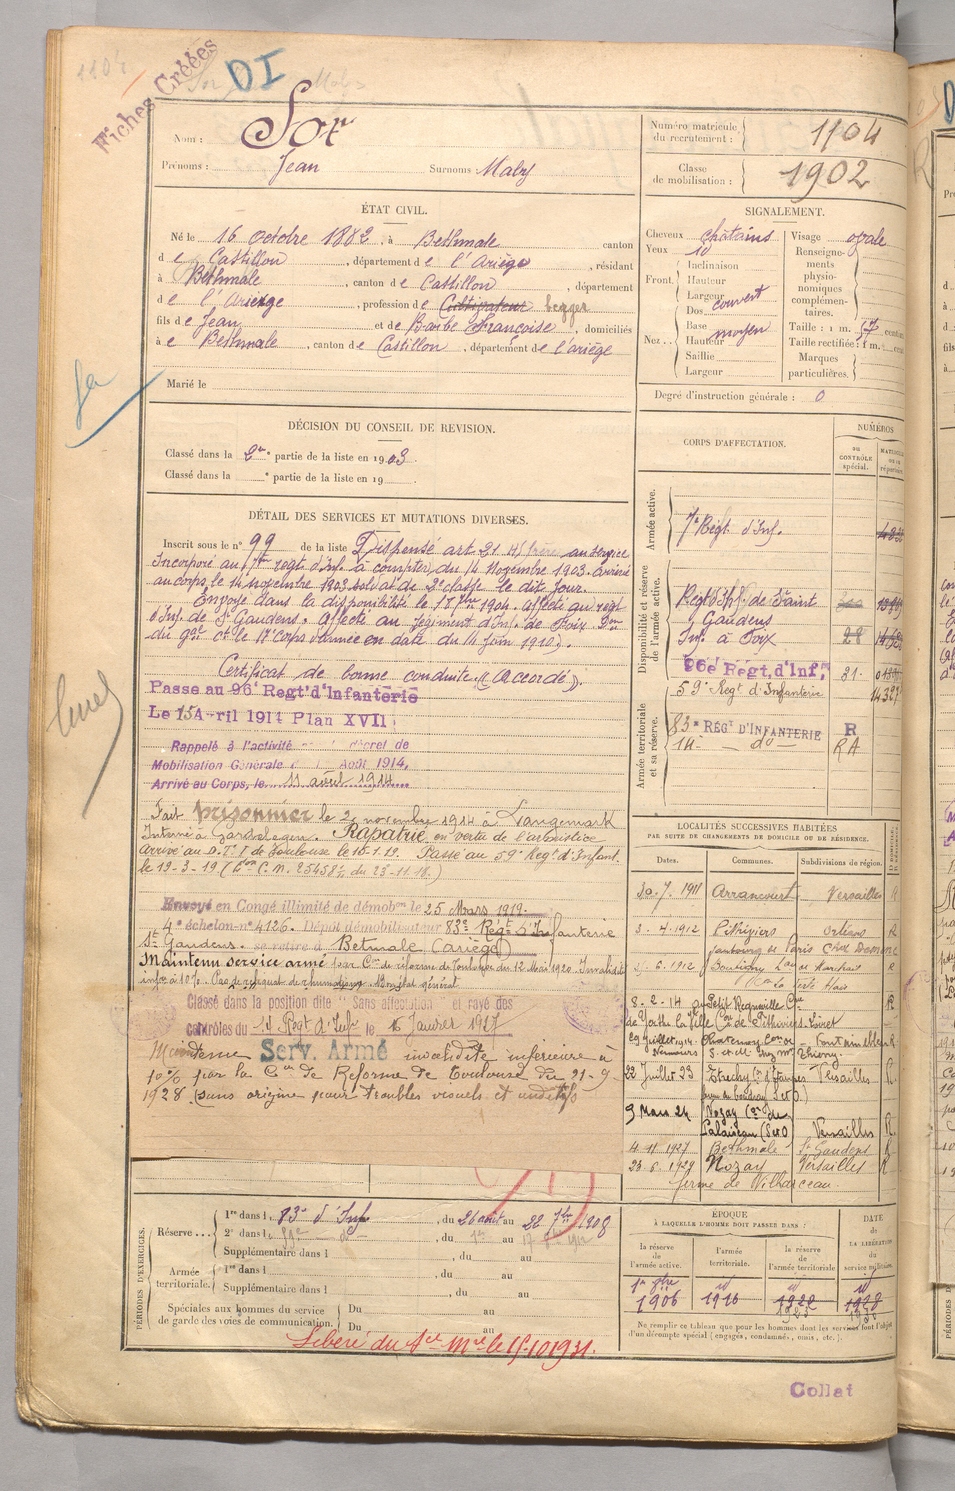 1104
Fiches Créées
DI
Nom : Sor
Prénoms : Jean Surnoms
Numéro matricule du recrutement : 1104
Classe de mobilisation : 1902
ÉTAT CIVIL.
Né le 16 octobre 1882, à Bethmale canton
de Castillon, département de l'Ariège, résidant
à Bethmale, canton de Castillon, département
de l'Ariège, profession de Cultivateur berger
fils de Jean et de Barbe Françoise, domiciliés
à Bethmale, canton de Castillon, département de l'ariège
Marié le
SIGNALEMENT.
Cheveux châtains Visage ovale
Yeux id Renseigne-
ments
physio-
nomiques
complémen-
taires.
Front. Inclinaison
Hauteur
Largeur couvert
Nez .. Dos
Base moyen
Hauteur
Saillie
Largeur
Taille : 1 m. centim.
Taille rectifiée : 1 m. cent.
Marques
particulières.
Degré d'instruction générale : 0
DÉCISION DU CONSEIL DE REVISION.
Classé dans la 2e partie de la liste en 1903
Classé dans la e partie de la liste en 19
DÉTAIL DES SERVICES ET MUTATIONS DIVERSES.
Inscrit sous le n° 99 de la liste Dispensé art. 21 frère au service
Incorporé au 7e regt d'Inf. à compter du 14 Novembre 1903. Arrivé
au corps le 14 novembre 1903 soldat de 2e classe le dit jour.
Envoyé dans la disponibilité le 17 7bre 1904. Affecté au regt
d'Inf. de St Gaudens. Affecté au Régiment d'Inf. de Foix
du Gal ct le 17e Corps d'armée en date du 11 Juin 1910.
Certificat de bonne conduite "Accordé".
Passe au 96e Regt d'Infanterie
Le 15 Avril 1914 Plan XVII
Rappelé à l'activité décret de
Mobilisation Générale Août 1914,
Arrivé au Corps, le 11 août 1914
Fait prisonnier le 2 novembre 1914 à Langemark
Interné à Gardelegen. Rapatrié en vertu de l'armistice
arrivé au D.T.I de Toulouse le 15.1.19. Passé au 59e Regt d'Infant.
le 19-3-19 du 23-11-18.)
Envoyé en Congé illimité de démobon le 25 Mars 1919.
4e échelon n° 4126. Dépot démobilisateur 83e Régt d'Infanterie
St Gaudens. se retire à Betmale (ariège)
Maintenu service armé par Con de réforme de Toulouse du 12 Mai 1920. Invalidité
infre à 10 %. Pas de reliquat de rhumatisme. Bon état général
Classé dans la position dite "Sans affectation" et rayé des
contrôles du Regt d'Inf le 16 Janvier 1927
Maintenu Serv. Armé invalidité inférieure à
10 % par la Con de Réforme de Toulouse du 21-9-
1928 (sans origine pour troubles visuels et auditifs
CORPS D'AFFECTATION.
NUMÉROS
DU CONTRÔLE spécial.
Armée active.
7e Régt d'Inf.
Disponibilité et réserve de l'armée active.
Regt d'Inf. de Saint
Gaudens
Inf. à Foix 28
96e Régt. d'Inf. 31
59e Regt d'Infanterie
Armée territoriale et sa réserve.
83e RÉGt D'INFANTERIE R
14e — do — RA
LOCALITÉS SUCCESSIVES HABITÉES
PAR SUITE DE CHANGEMENTS DE DOMICILE OU DE RÉSIDENCE.
Dates. Communes. Subdivisions de région.
20.7.1911 Arrancourt Versailles R
3.4.1912 Pithiviers Orléans R
faubourg de Paris Chez
6.1912 Boutigny R
8-2-14 Petit R
Con de Pithiviers Loiret
29 Juillet 1914 Fontainebleau R
Nemours S. et M. Thierry
22 Juillet 23 Etrechy Con d'Etampes Versailles R
9 Mars 24 Nozay Con de
Palaiseau (S et O) Versailles R
4-11-1927 Bethmale St Gaudens R
23.6.1929 Nozay Versailles R
ferme de Villarceau
PÉRIODES D'EXERCICES.
Réserve 1re dans l 83e d'Inf, du 26 août au 22 7bre 1908
2e dans l , du au
Supplémentaire dans l , du au
Armée territoriale. 1re dans l , du au
Supplémentaire dans l , du au
Spéciales aux hommes du service Du au
de garde des voies de communication. Du au
Libéré du Sce Mre le 15.10.1931.
ÉPOQUE
À LAQUELLE L'HOMME DOIT PASSER DANS :
la réserve de l'armée active. l'armée territoriale. la réserve de l'armée territoriale
DATE de LA LIBÉRATION du service militaire.
1er 9bre id id id
1906 1916 1922 1928
Ne remplir ce tableau que pour les hommes dont les services font l'objet
d'un décompte spécial (engagés, condamnés, omis, etc.)
Collat